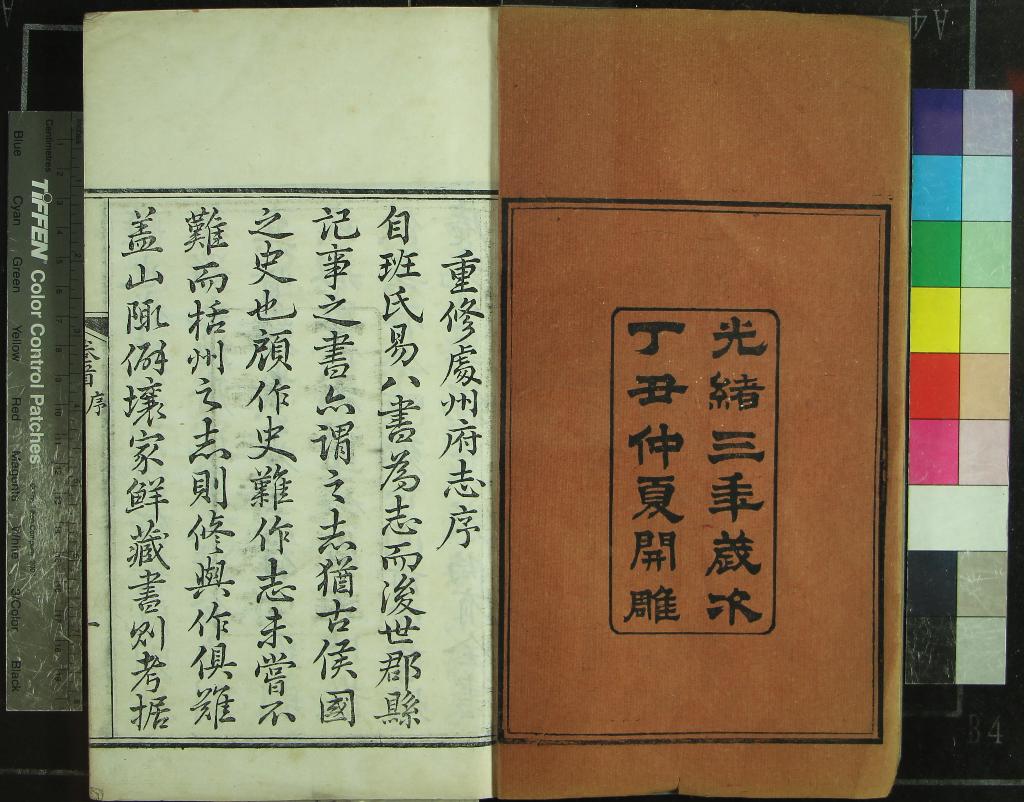 光緒三年歲次
丁丑仲夏開雕
重修處州府志序
自班氏易八書為志而後世郡縣
記事之書亦謂之志猶古侯國
之史也顧作史難作志未嘗不
難而括州之志則修與作俱難
蓋山陬僻壤家鮮藏書則考据
卷首
序
一
Centimetres
Inches
TIFFEN Color Control Patches
Blue
Cyan
Green
Yellow
Red
Magenta
White
3/Color
Black
A4
B4